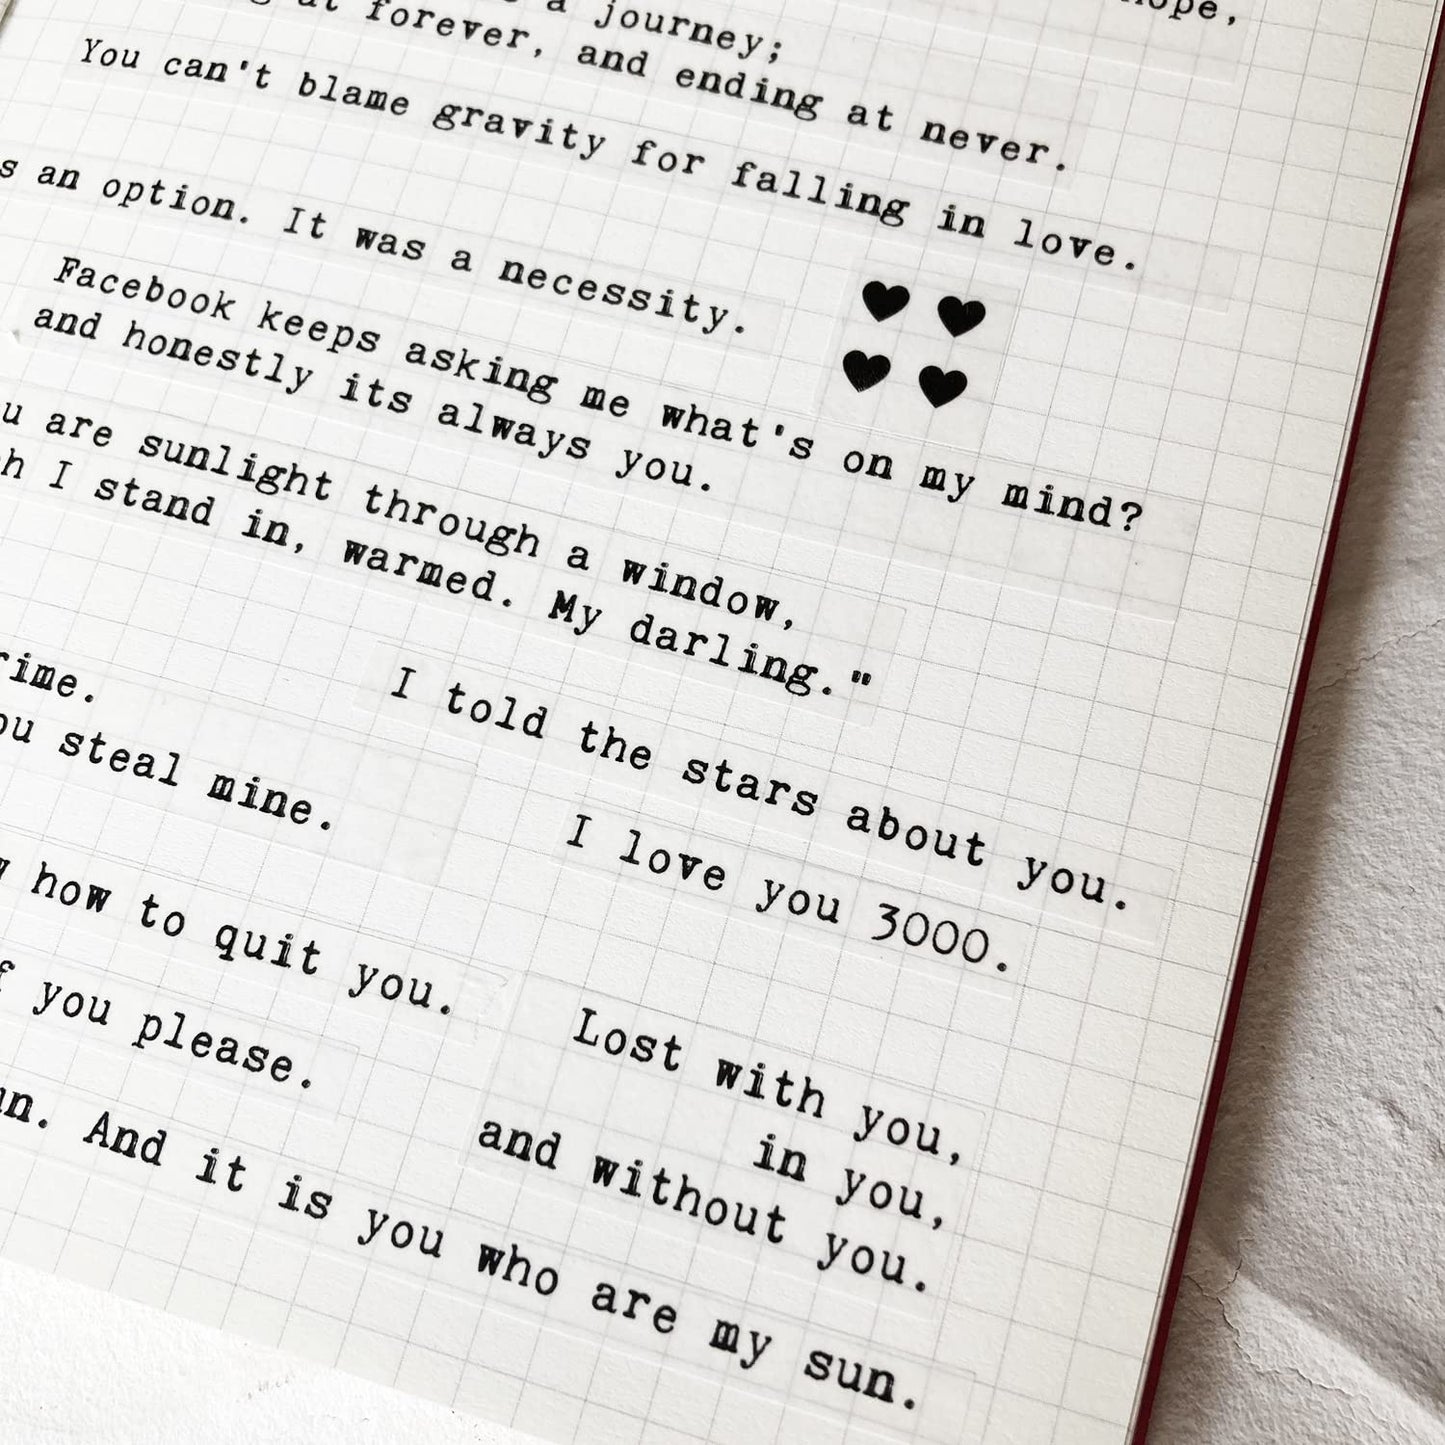 a journey;
at forever, and ending at never.
You can't blame gravity for falling in love.
an option. It was a necessity.
Facebook keeps asking me what's on my mind?
and honestly its always you.
are sunlight through a window,
I stand in, warmed. My darling."
steal mine.
I told the stars about you.
I love you 3000.
how to quit you.
you please.
Lost with you,
in you,
and without you.
And it is you who are my sun.